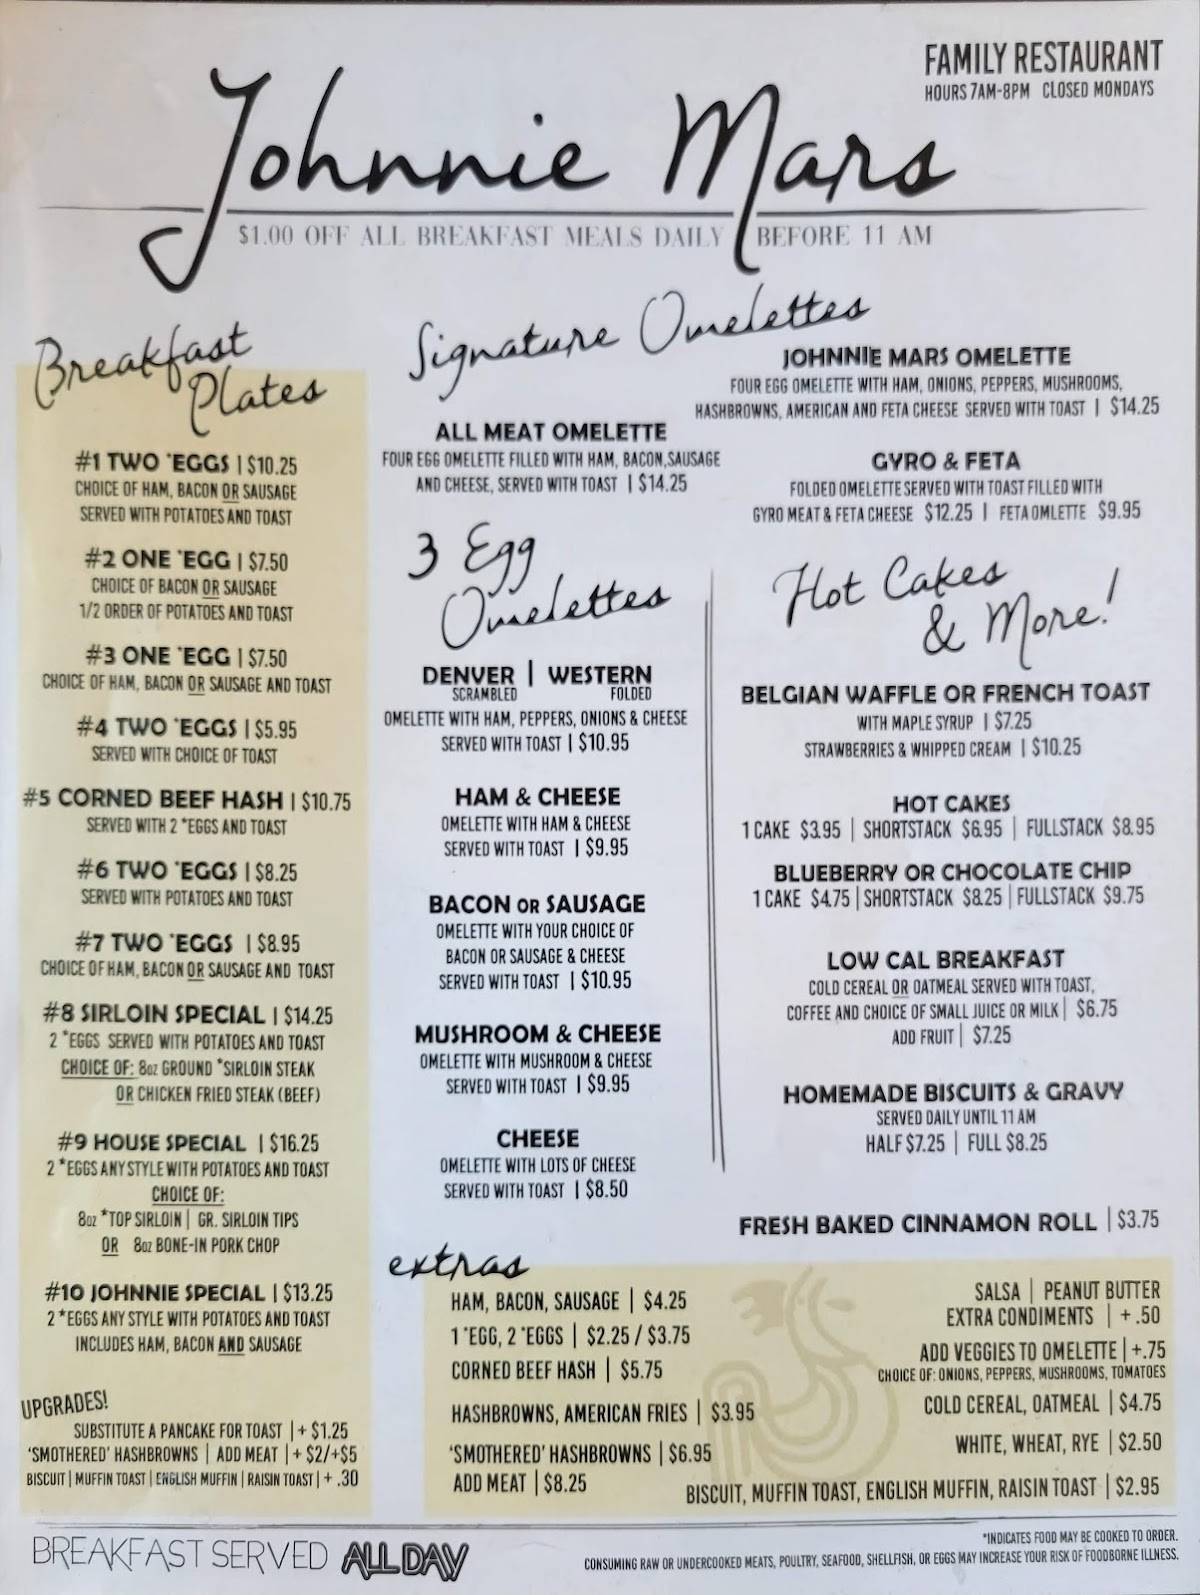 FAMILY RESTAURANT
HOURS 7AM-8PM CLOSED MONDAYS
Johnnie Mars
$1.00 OFF ALL BREAKFAST MEALS DAILY BEFORE 11 AM
Breakfast
Plates
#1 TWO *EGGS | $10.25
CHOICE OF HAM, BACON OR SAUSAGE
SERVED WITH POTATOES AND TOAST
#2 ONE *EGG | $7.50
CHOICE OF BACON OR SAUSAGE
1/2 ORDER OF POTATOES AND TOAST
#3 ONE *EGG | $7.50
CHOICE OF HAM, BACON OR SAUSAGE AND TOAST
#4 TWO *EGGS | $5.95
SERVED WITH CHOICE OF TOAST
#5 CORNED BEEF HASH | $10.75
SERVED WITH 2 *EGGS AND TOAST
#6 TWO *EGGS | $8.25
SERVED WITH POTATOES AND TOAST
#7 TWO *EGGS | $8.95
CHOICE OF HAM, BACON OR SAUSAGE AND TOAST
#8 SIRLOIN SPECIAL | $14.25
2 *EGGS SERVED WITH POTATOES AND TOAST
CHOICE OF: 8oz GROUND *SIRLOIN STEAK
OR CHICKEN FRIED STEAK (BEEF)
#9 HOUSE SPECIAL | $16.25
2 *EGGS ANY STYLE WITH POTATOES AND TOAST
CHOICE OF:
8oz *TOP SIRLOIN | GR. SIRLOIN TIPS
OR 8oz BONE-IN PORK CHOP
#10 JOHNNIE SPECIAL | $13.25
2 *EGGS ANY STYLE WITH POTATOES AND TOAST
INCLUDES HAM, BACON AND SAUSAGE
UPGRADES!
SUBSTITUTE A PANCAKE FOR TOAST | + $1.25
'SMOTHERED' HASHBROWNS | ADD MEAT | + $2/+$5
BISCUIT | MUFFIN TOAST | ENGLISH MUFFIN | RAISIN TOAST | + .30
Signature Omelettes
ALL MEAT OMELETTE
FOUR EGG OMELETTE FILLED WITH HAM, BACON,SAUSAGE
AND CHEESE, SERVED WITH TOAST | $14.25
JOHNNIE MARS OMELETTE
FOUR EGG OMELETTE WITH HAM, ONIONS, PEPPERS, MUSHROOMS,
HASHBROWNS, AMERICAN AND FETA CHEESE SERVED WITH TOAST | $14.25
GYRO & FETA
FOLDED OMELETTE SERVED WITH TOAST FILLED WITH
GYRO MEAT & FETA CHEESE $12.25 | FETA OMLETTE $9.95
3 Egg
Omelettes
DENVER | WESTERN
SCRAMBLED FOLDED
OMELETTE WITH HAM, PEPPERS, ONIONS & CHEESE
SERVED WITH TOAST | $10.95
HAM & CHEESE
OMELETTE WITH HAM & CHEESE
SERVED WITH TOAST | $9.95
BACON OR SAUSAGE
OMELETTE WITH YOUR CHOICE OF
BACON OR SAUSAGE & CHEESE
SERVED WITH TOAST | $10.95
MUSHROOM & CHEESE
OMELETTE WITH MUSHROOM & CHEESE
SERVED WITH TOAST | $9.95
CHEESE
OMELETTE WITH LOTS OF CHEESE
SERVED WITH TOAST | $8.50
Hot Cakes
& More!
BELGIAN WAFFLE OR FRENCH TOAST
WITH MAPLE SYRUP | $7.25
STRAWBERRIES & WHIPPED CREAM | $10.25
HOT CAKES
1 CAKE $3.95 | SHORTSTACK $6.95 | FULLSTACK $8.95
BLUEBERRY OR CHOCOLATE CHIP
1 CAKE $4.75 | SHORTSTACK $8.25 | FULLSTACK $9.75
LOW CAL BREAKFAST
COLD CEREAL OR OATMEAL SERVED WITH TOAST,
COFFEE AND CHOICE OF SMALL JUICE OR MILK | $6.75
ADD FRUIT | $7.25
HOMEMADE BISCUITS & GRAVY
SERVED DAILY UNTIL 11 AM
HALF $7.25 | FULL $8.25
FRESH BAKED CINNAMON ROLL | $3.75
extras
HAM, BACON, SAUSAGE | $4.25
1 *EGG, 2 *EGGS | $2.25 / $3.75
CORNED BEEF HASH | $5.75
HASHBROWNS, AMERICAN FRIES | $3.95
'SMOTHERED' HASHBROWNS | $6.95
ADD MEAT | $8.25
SALSA | PEANUT BUTTER
EXTRA CONDIMENTS | + .50
ADD VEGGIES TO OMELETTE | +.75
CHOICE OF: ONIONS, PEPPERS, MUSHROOMS, TOMATOES
COLD CEREAL, OATMEAL | $4.75
WHITE, WHEAT, RYE | $2.50
BISCUIT, MUFFIN TOAST, ENGLISH MUFFIN, RAISIN TOAST | $2.95
BREAKFAST SERVED ALL DAY
*INDICATES FOOD MAY BE COOKED TO ORDER.
CONSUMING RAW OR UNDERCOOKED MEATS, POULTRY, SEAFOOD, SHELLFISH, OR EGGS MAY INCREASE YOUR RISK OF FOODBORNE ILLNESS.